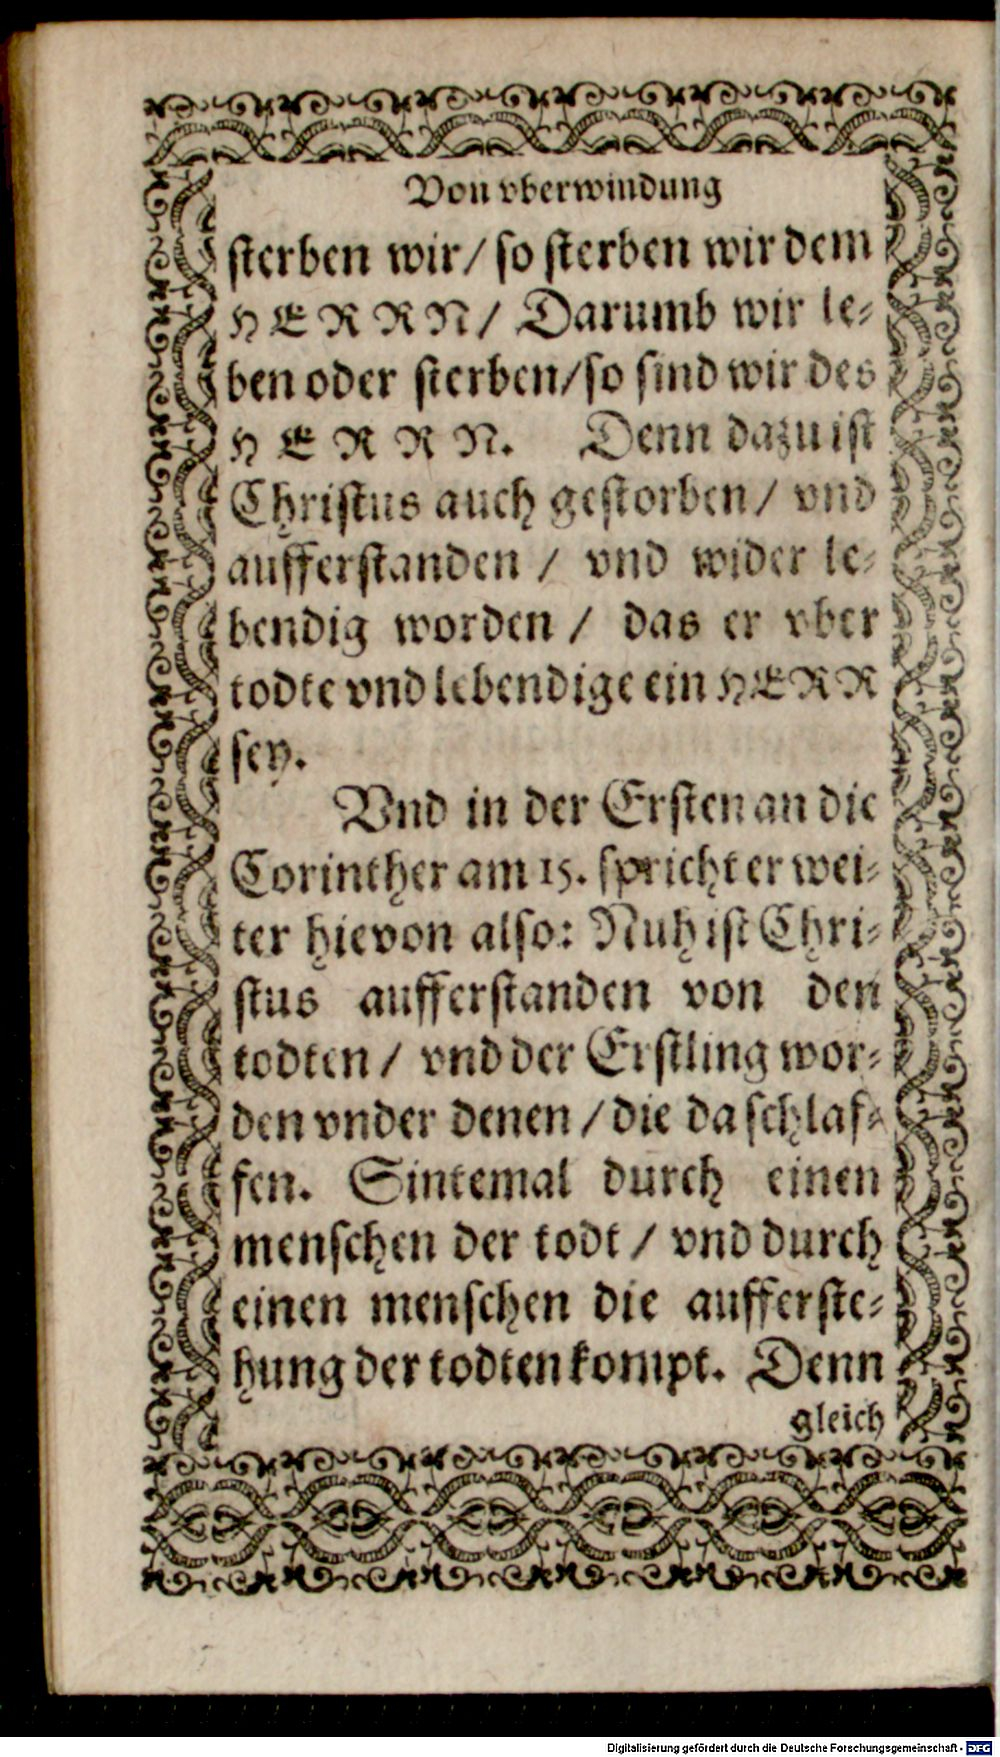 Von vberwindung
sterben wir/ so sterben wir dem
HERRN/ Darumb wir le-
ben oder sterben/ so sind wir des
HERRN. Denn dazu ist
Christus auch gestorben/ vnd
aufferstanden/ vnd wider le-
bendig worden/ das er vber
todte vnd lebendige ein HERR
sey.
Vnd in der Ersten an die
Corinther am 15. spricht er wei-
ter hievon also: Nuh ist Chri-
stus aufferstanden von den
todten/ vnd der Erstling wor-
den vnder denen/ die da schlaf-
fen. Sintemal durch einen
menschen der todt/ vnd durch
einen menschen die aufferste-
hung der todten kompt. Denn
gleich
Digitalisierung gefördert durch die Deutsche Forschungsgemeinschaft - DFG